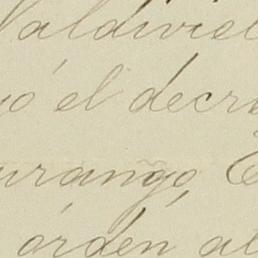 Valdivie
yó el decre
urango, E
órden al